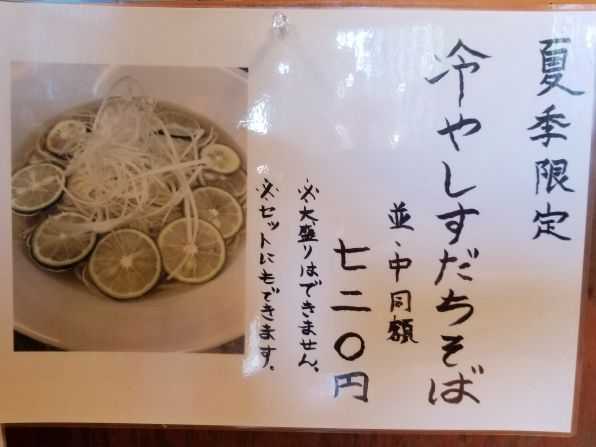 夏季限定
冷やしすだちそば
並・中同額
七二〇円
※大盛りはできません。
※セットにもできます。